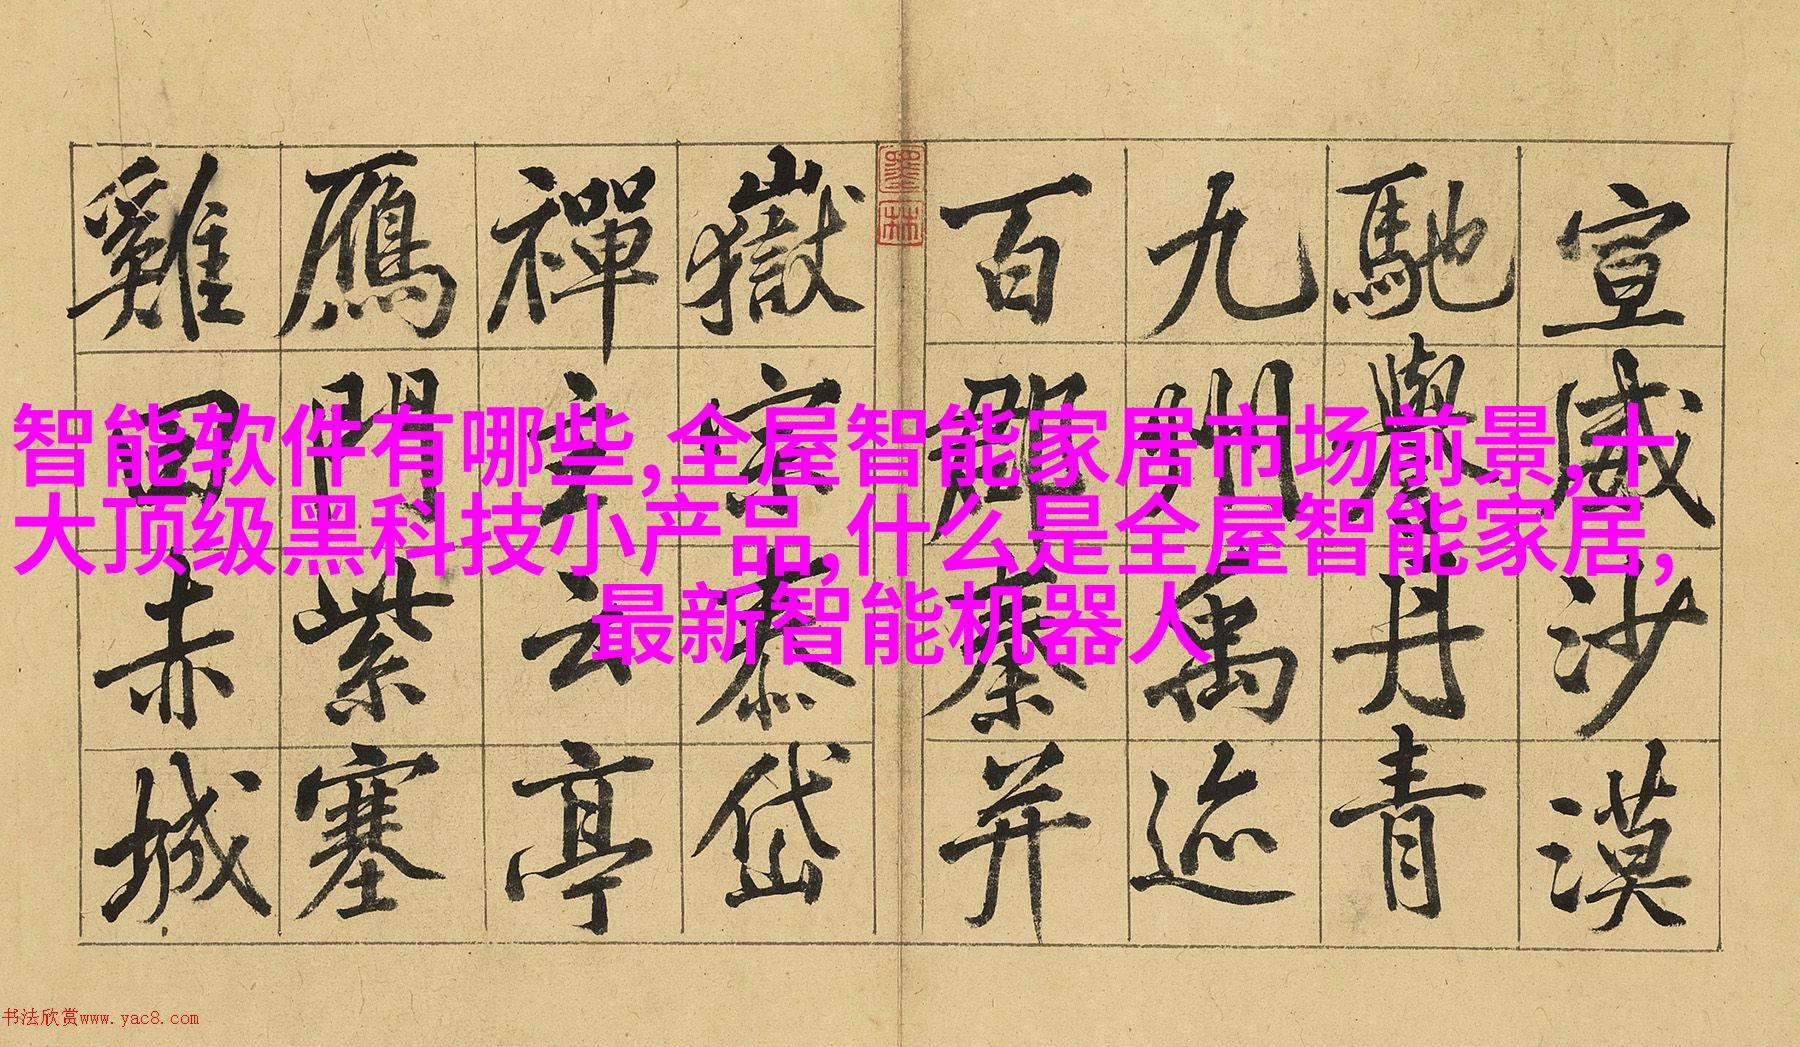 宣威沙漠
馳譽丹青
九州禹迹
百郡秦并
墨林
嶽宗泰岱
禪主云亭
鴈門紫塞
雞田赤城
智能软件有哪些,全屋智能家居市场前景,十
大顶级黑科技小产品,什么是全屋智能家居,
最新智能机器人
书法欣赏www.yac8.com